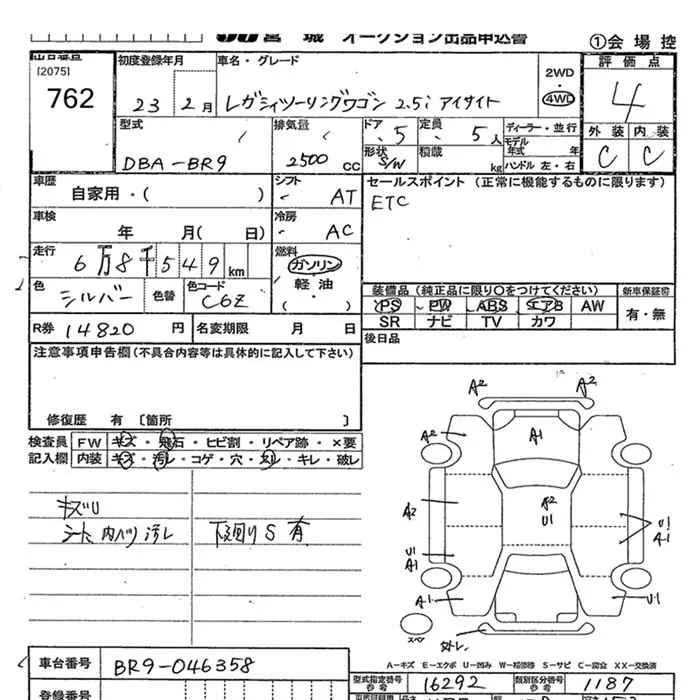 宮城 オークション出品申込書
①会場控
出品番号
[2075]
762
初度登録年月
23 2月
車名・グレード
レガシィツーリングワゴン 2.5i アイサイト
2WD
・
4WD
評価点
4
外装 内装
C C
型式
DBA-BR9
排気量
2500 CC
ドア
5
形状
S/W
定員
5人
積載
kg
ディーラー・並行
モデル年式 年
ハンドル 左・右
車歴
自家用・( )
シフト
AT
セールスポイント (正常に機能するものに限ります)
ETC
車検
年 月( 日)
冷房
AC
走行
6万8千549km
燃料
ガソリン
・
軽油
( ・ )
色
シルバー
色替
色コード
C6Z
装備品 (純正品に限り○をつけてください)
新車保証書
PS PW ABS エアB AW
SR ナビ TV カワ
有・無
R券 14820 円
名変期限 月 日
後日品
注意事項申告欄(不具合内容等は具体的に記入して下さい)
修復歴 有 〔箇所 〕
検査員記入欄
FW キズ・飛石・ヒビ割・リペア跡・×要
内装 キズ・汚レ・コゲ・穴・ヌレ・キレ・破レ
キズU
シート 内バリ 汚レ
下廻りS有
A2 A2
A2 A1
A2 A2 U1
U1 A1
U1 A1
A1 U1
スペア
A-キズ E-エクボ U-凹み W-補修跡 S-サビ C-腐食 X・XX-交換済
車台番号
BR9-046358
型式指定番号
参考
16292
類別区分番号
参考
1187
登録番号